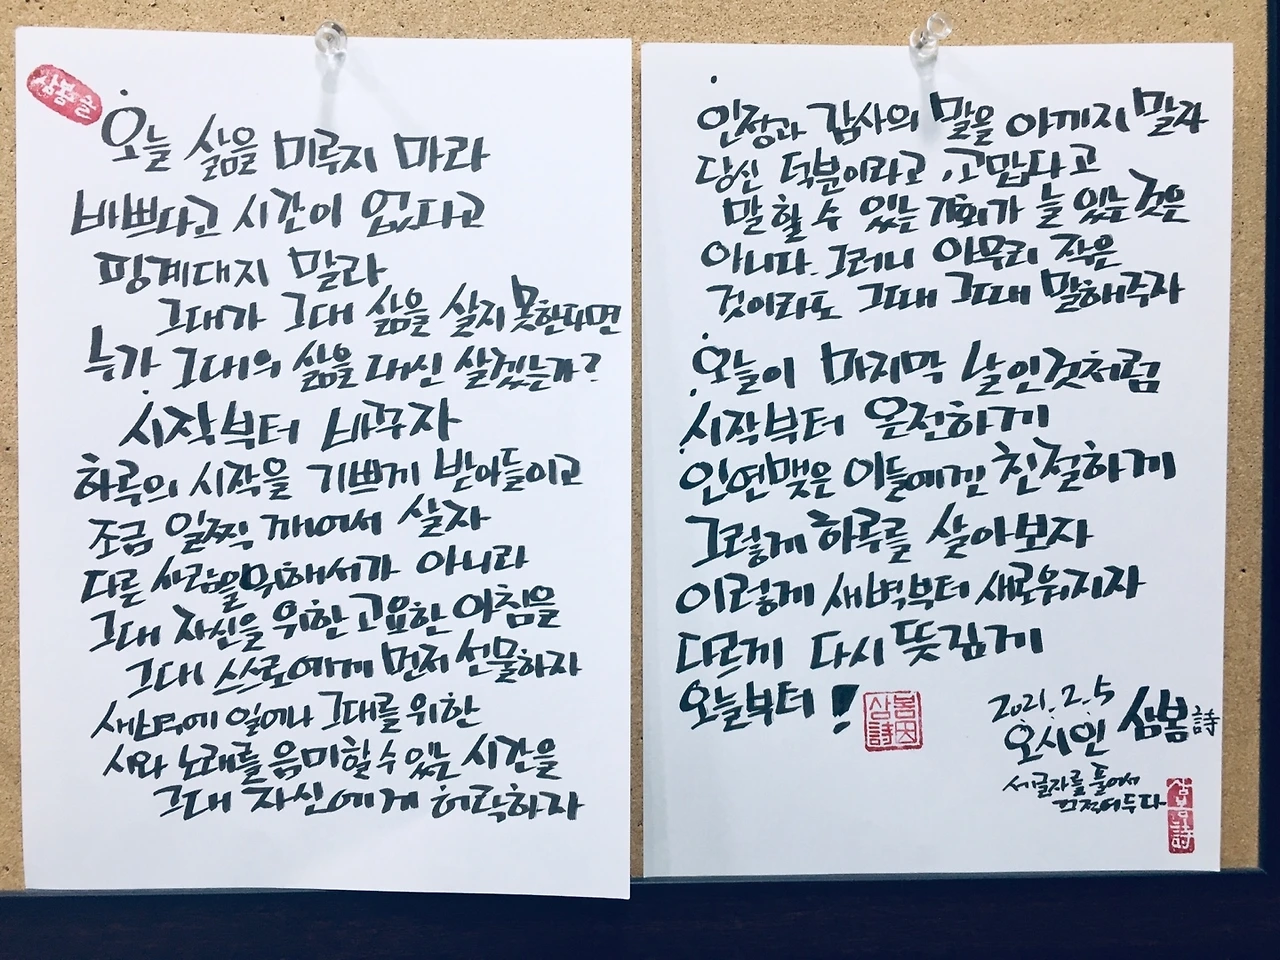 삼봉솔
오늘 삶을 미루지 마라
바쁘다고 시간이 없다고
핑계대지 말라
그대가 그대 삶을 살지 못한다면
누가 그대의 삶을 대신 살겠는가?
시작부터 바꾸자
하루의 시작을 기쁘게 받아들이고
조금 일찍 깨어서 살자
다른 사람을 위해서가 아니라
그대 자신을 위한 고요한 아침을
그대 스스로에게 먼저 선물하자
새벽에 일어나 그대를 위한
시와 노래를 음미할 수 있는 시간을
그대 자신에게 허락하자
인정과 감사의 말을 아끼지 말자
당신 덕분이라고, 고맙다고
말할 수 있는 기회가 늘 있는 것은
아니다. 그러니 아무리 작은
것이라도 그때 그때 말해주자
오늘이 마지막 날인것처럼
시작부터 온전하게
인연맺은 이들에겐 친절하게
그렇게 하루를 살아보자
이렇게 새벽부터 새로워지자
다르게 다시 뜻깊게
오늘부터!
2021. 2. 5
오시인 삼봉詩
세글자를 풀어서
끄적여두다
삼봉詩